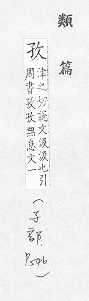 類篇
孜
津之切說文汲汲也引
周書孜孜無怠文一
(子部 P.546)